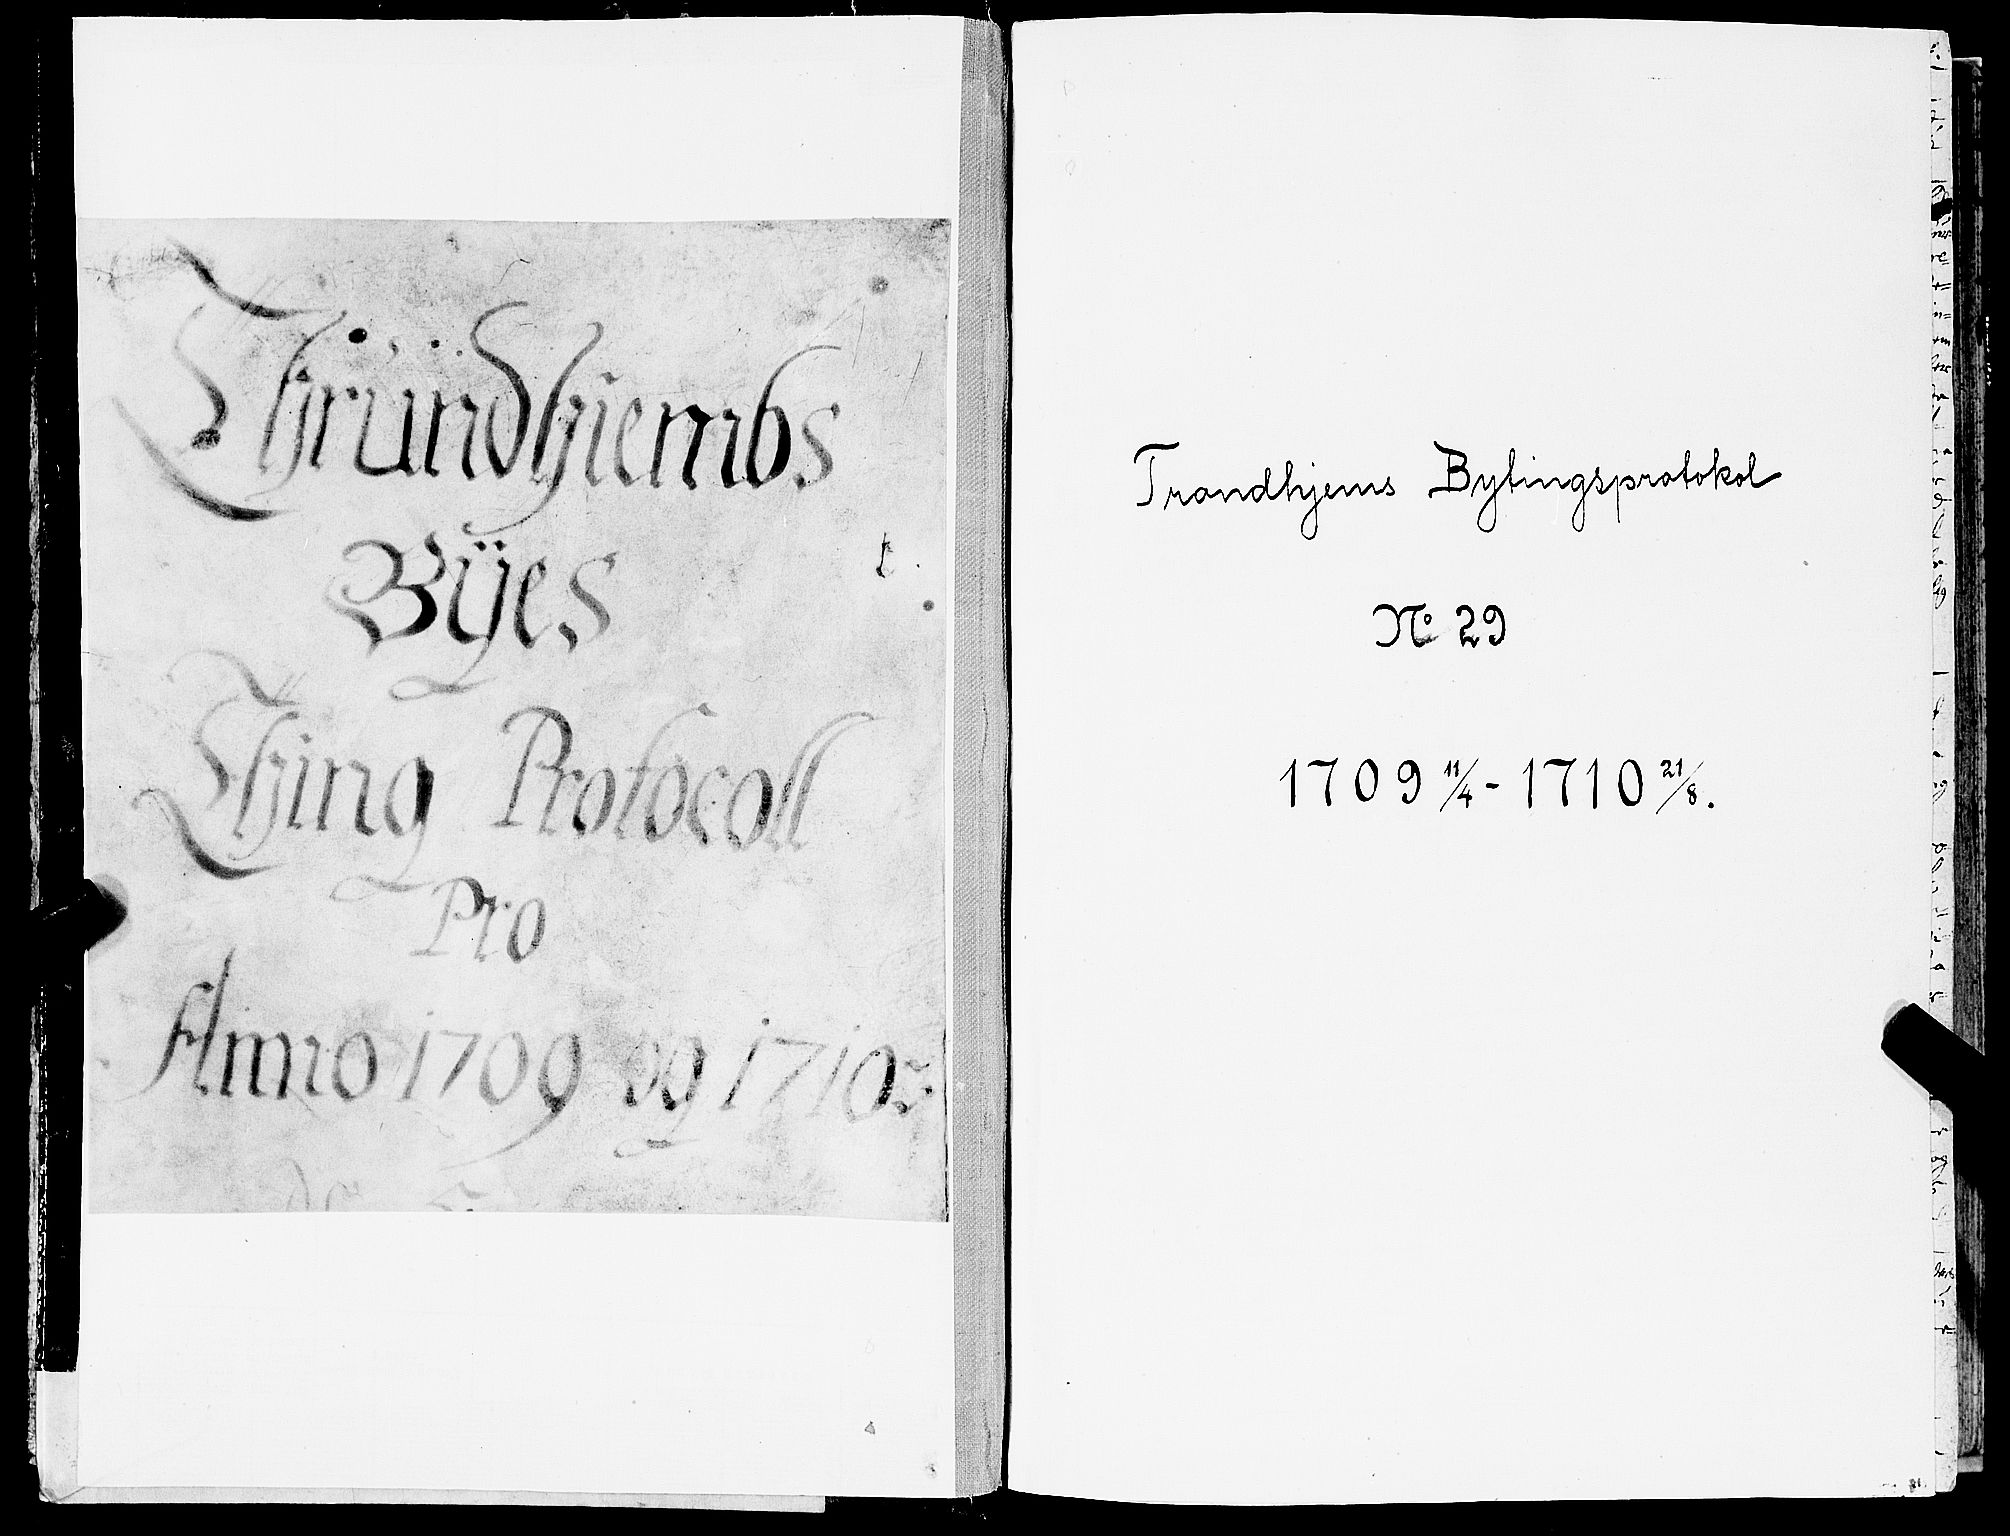 Thründhiembs
Bÿes
Thing Protocoll
Pro
Anno 1709 og 1710
Trondhjems Bytingsprotokol
No 29
1709 11/4 - 1710 21/8.